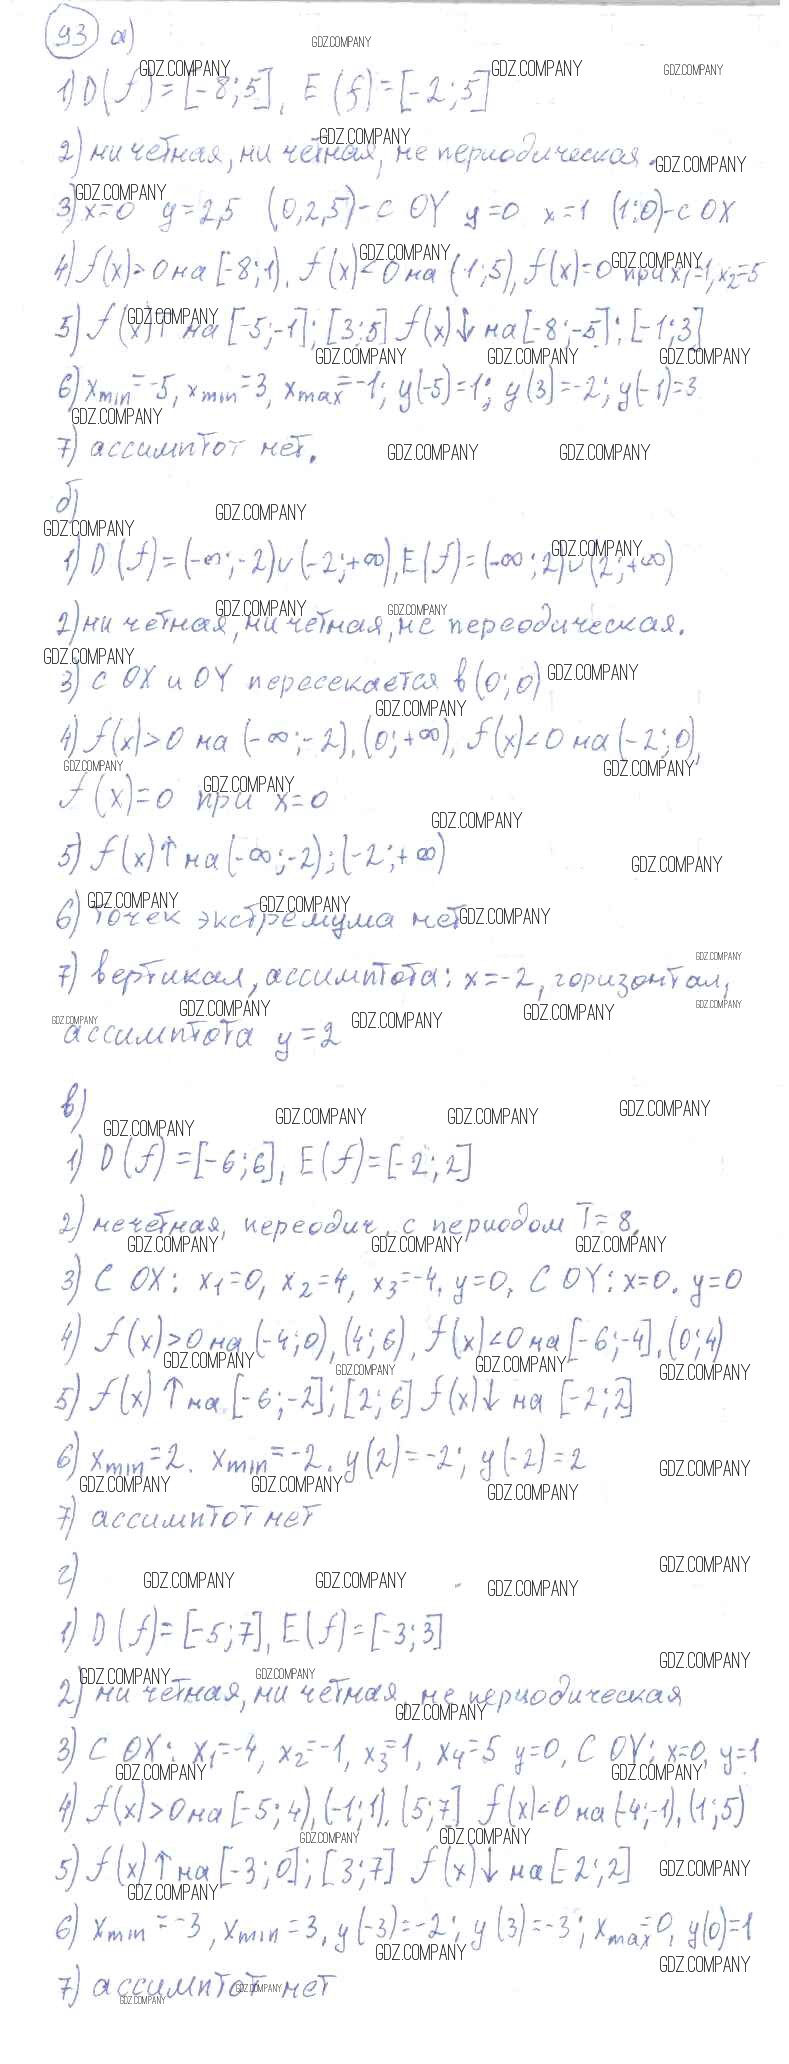 93 а)
1) D(f)=[-8;5], E(f)=[-2;5]
2) ни четная, ни четная, не периодическая.
3) x=0 y=2,5 (0,2,5)-с OY y=0 x=1 (1;0)-с OX
4) f(x)>0 на [-8;1), f(x)<0 на (1;5), f(x)=0 при x₁=1, x₂=5
5) f(x)↑ на [-5;-1]; [3;5] f(x)↓ на [-8;-5]; [-1;3]
6) xmin=-5, xmin=3, xmax=-1; y(-5)=1; y(3)=-2; y(-1)=3
7) ассимптот нет.
б)
1) D(f)=(-∞;-2)∪(-2;+∞), E(f)=(-∞;2)∪(2;+∞)
2) ни четная, ни четная, не переодическая.
3) с OX и OY пересекается в (0;0)
4) f(x)>0 на (-∞;-2), (0;+∞), f(x)<0 на (-2;0),
f(x)=0 при x=0
5) f(x)↑ на (-∞;-2); (-2;+∞)
6) точек экстремума нет
7) вертикал, ассимптота: x=-2, горизонтал,
ассимптота y=2
в)
1) D(f)=[-6;6], E(f)=[-2;2]
2) нечетная, переодич. с периодом T=8.
3) С OX: x₁=0, x₂=4, x₃=-4, y=0, С OY: x=0. y=0
4) f(x)>0 на (-4;0), (4;6), f(x)<0 на [-6;-4], (0;4)
5) f(x)↑ на [-6;-2]; [2;6] f(x)↓ на [-2;2]
6) xmin=2. xmin=-2. y(2)=-2; y(-2)=2
7) ассимптот нет
г)
1) D(f)=[-5;7], E(f)=[-3;3]
2) ни четная, ни четная, не периодическая
3) С OX: x₁=-4, x₂=-1, x₃=1, x₄=5 y=0, С OY: x=0, y=1
4) f(x)>0 на [-5;4), (-1;1), (5;7] f(x)<0 на (-4;-1), (1;5)
5) f(x)↑ на [-3;0]; [3;7] f(x)↓ на [-2;2]
6) xmin=-3, xmin=3, y(-3)=-2; y(3)=-3; xmax=0, y(0)=1
7) ассимптот нет
GDZ.COMPANY